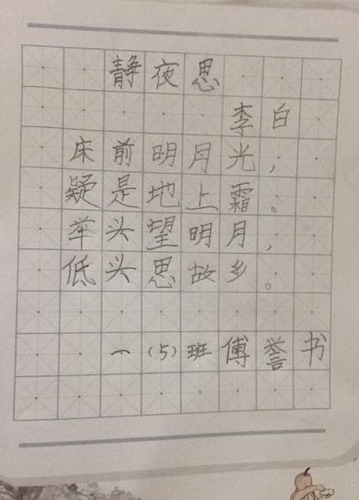 静夜思
李白
床前明月光，
疑是地上霜。
举头望明月，
低头思故乡。
一（5）班傅誉书